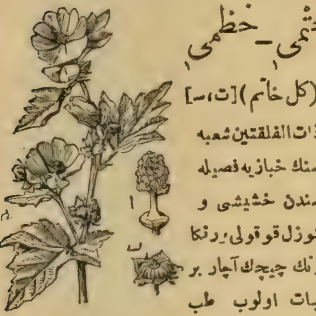 ختمی ـ خطمی
(کل خاتم) [ت،س]
ذات الفلقتین شعبه
سنك خبازیه فصیله
سندن حشیشی و
كوزل قوقولی بر رنكا
رنك چیچك آچار بر
نبات اولوب طب